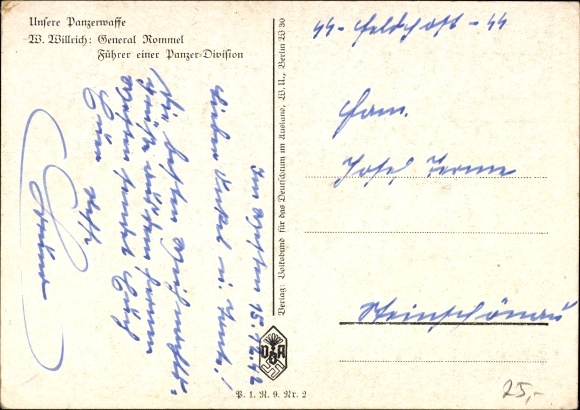 Unsere Panzerwaffe
W. Willrich: General Rommel
Führer einer Panzer-Division
Im Westen 15.12.42
Lieber Onkel u. Tante!
Die besten Weihnachts-
grüße aus dem fernen
Westen sendet Euch
Euer Neffe
Verlag: Volksbund für das Deutschtum im Ausland, W.U., Berlin W 30
VDA
P. 1. R. 9. Nr. 2
44- Feldpost - 44
Fam.
Josef
Steinschönau
25,-